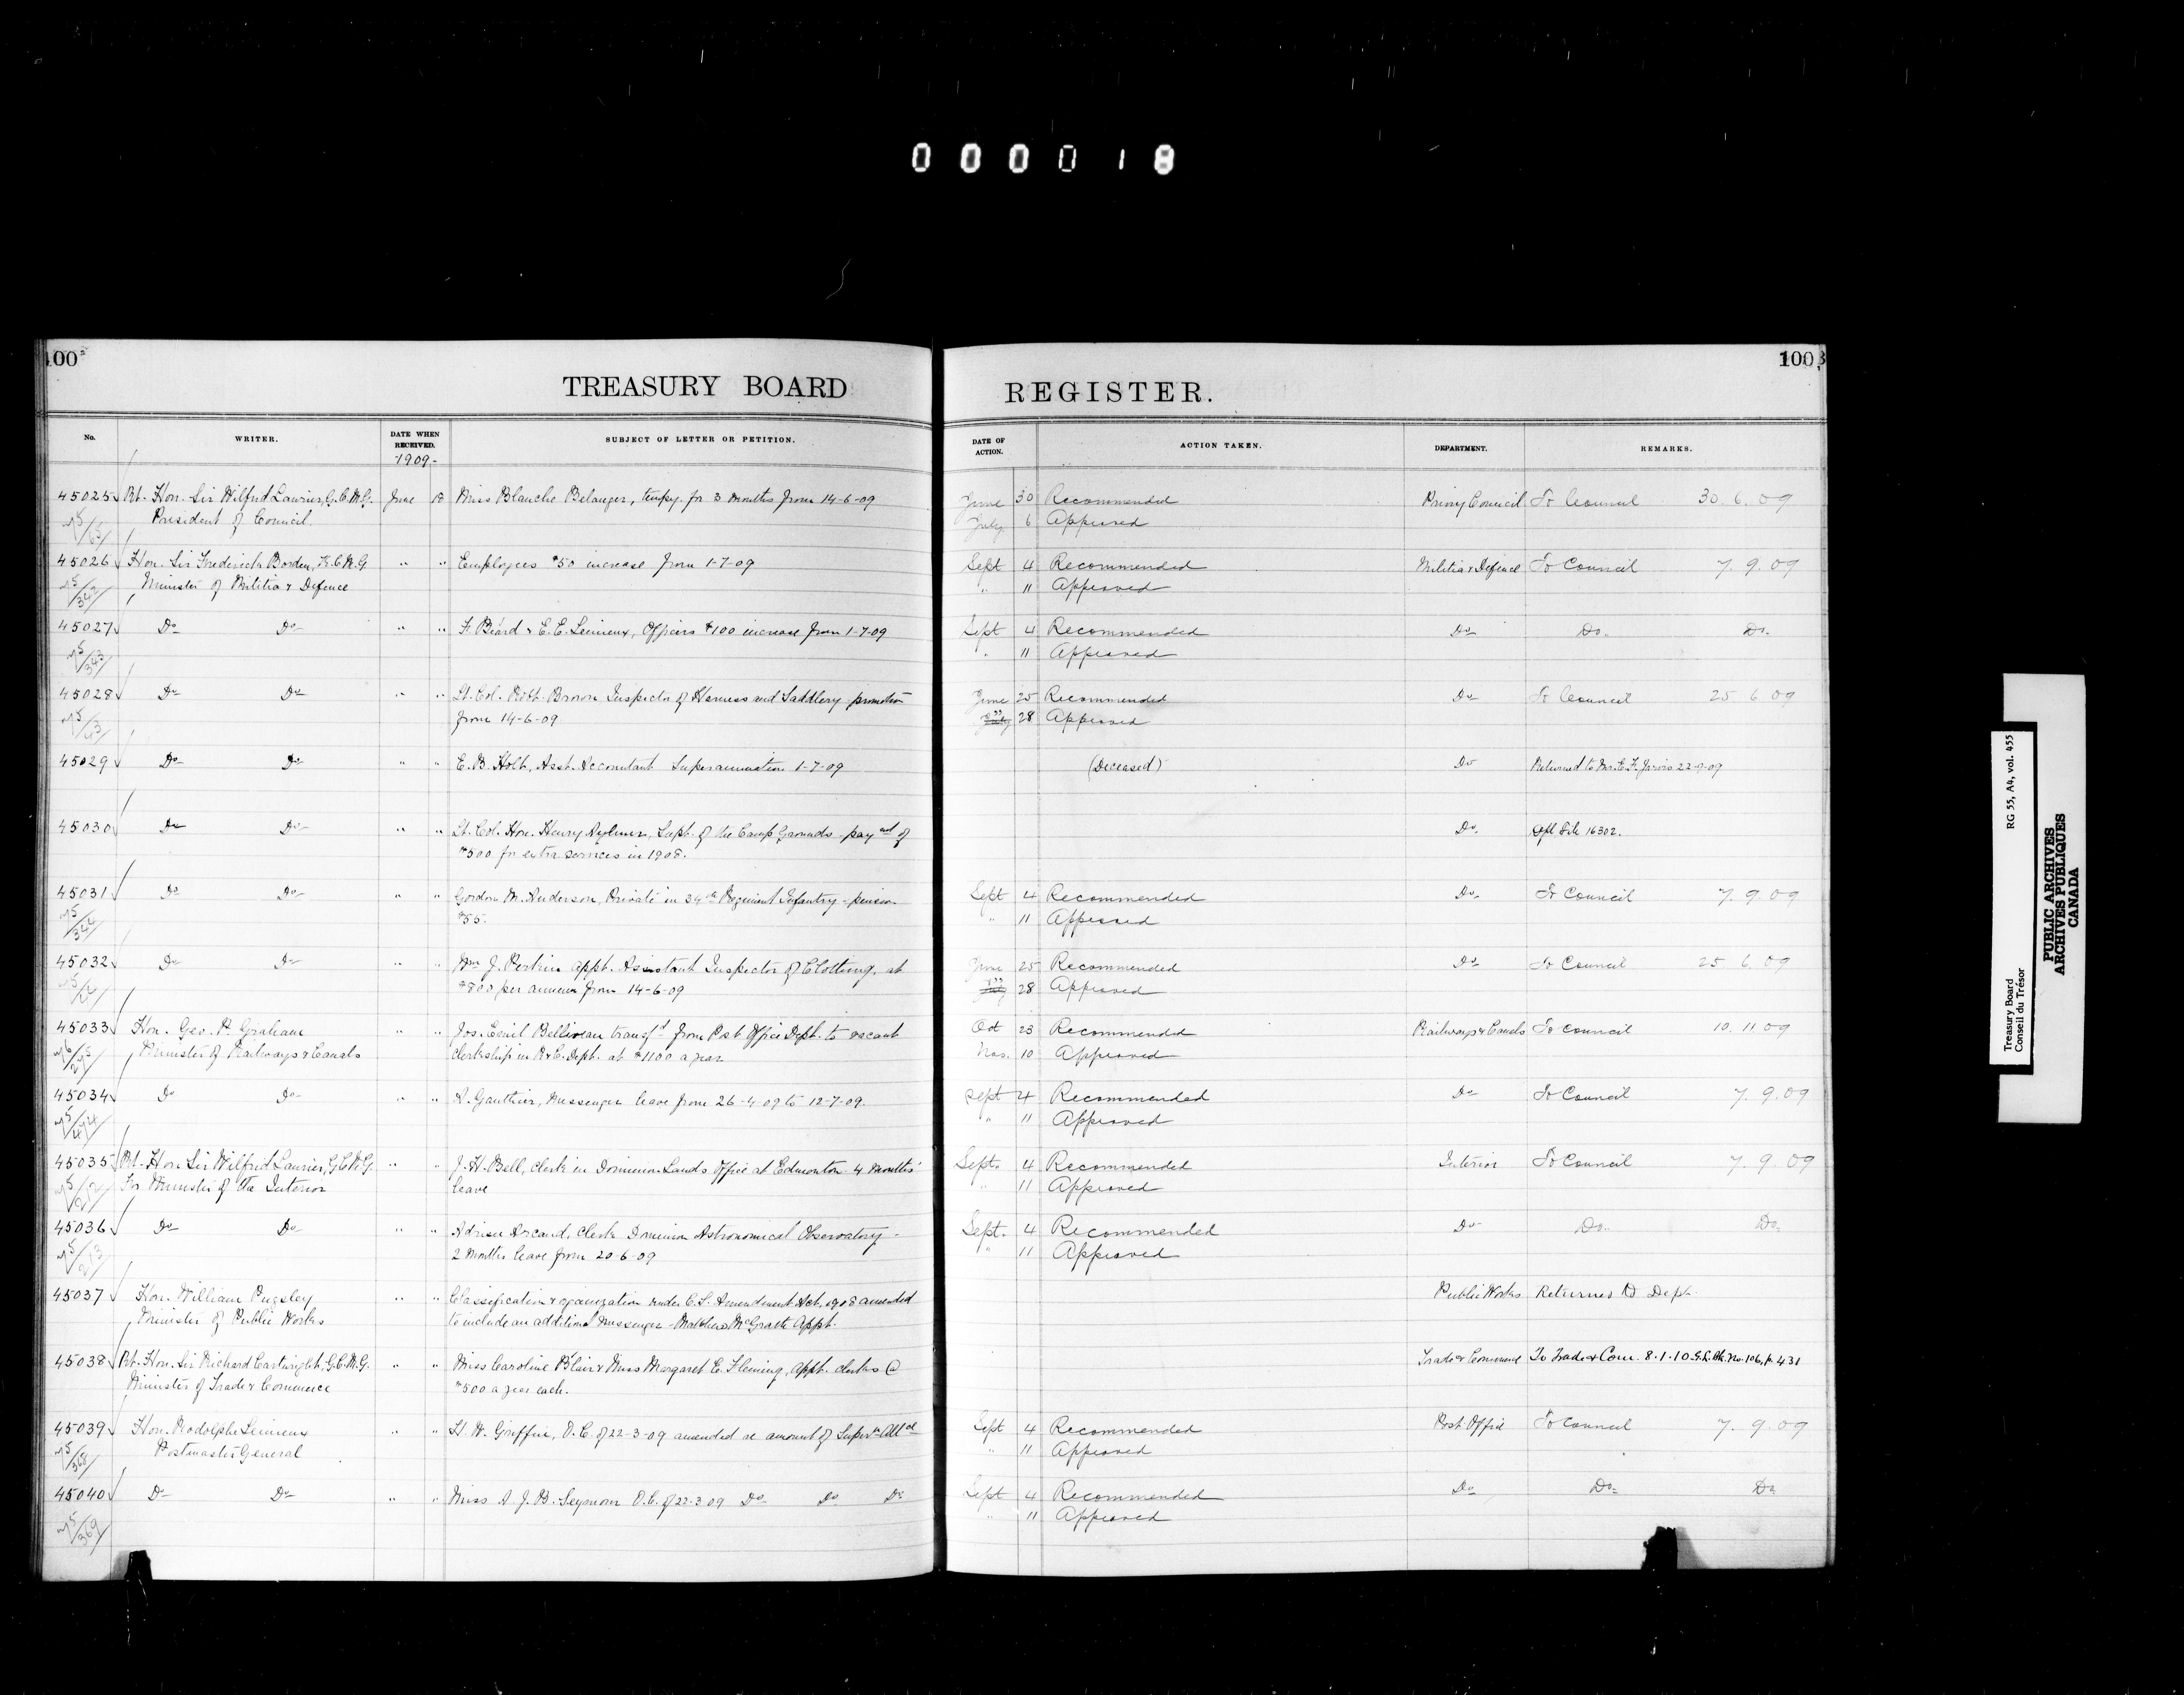 000018
100
1003
TREASURY BOARD REGISTER.
No. WRITER. DATE WHEN RECEIVED. SUBJECT OF LETTER OR PETITION. DATE OF ACTION. ACTION TAKEN. DEPARTMENT. REMARKS.
-1909-
45025 Rt. Hon. Sir Wilfrid Laurier, G.C.M.G. June 18 Miss Blanche Belanger, tempy. for 3 months from 14-6-09 June 30 Recommended Privy Council To Council 30.6.09
President of Council. July 6 Approved
45026 Hon. Sir Frederick Borden, K.C.M.G " " Employees $50 increase from 1-7-09 Sept 4 Recommended Militia & Defence To Council 7.9.09
Minister of Militia & Defence " 11 Approved
45027 Do Do " " F. Béard & E.E. Lemieux, Officers $100 increase from 1-7-09 Sept 4 Recommended Do Do. Do.
" 11 Approved
45028 Do Do " " Lt. Col. Robt. Brown Inspector of Harness and Saddlery promotion June 25 Recommended Do To Council 25 6 09
from 14-6-09 " 28 Approved
45029 Do Do " " E.B. Holt, Asst. Accountant Superannuation 1-7-09 (Deceased) Do Returned to Mr. C.F. Jarvis 22-9-09
45030 Do Do " " Lt. Col. Hon. Henry Aylmer, Supt. of the Camp Grounds - paymt of Do. File 16302.
$500 for extra services in 1908.
45031 Do Do " " Gordon M. Anderson, Private in 34th Regiment Infantry - pension Sept 4 Recommended Do. To Council 7.9.09
$55. " 11 Approved
45032 Do Do " " Wm J. Perkins appt. Assistant Inspector of Clothing, at June 25 Recommended Do To Council 25.6.09
$800 per annum from 14-6-09 28 Approved
45033 Hon. Geo. P. Graham " " Jos. Emil Belliveau transfd from Post Office Dept. to vacant Oct 23 Recommended Railways & Canals To Council 10.11 09
Minister of Railways & Canals clerkship in R & C. Dept. at $1100 a year Nov. 10 Approved
45034 Do Do " " A. Gauthier, Messenger leave from 26-4-09 to 12-7-09. Sept 4 Recommended Do To Council 7.9.09
" 11 Approved
45035 Rt. Hon. Sir Wilfrid Laurier, G.C.M.G. " " J.H. Bell, Clerk in Dominion Lands Office at Edmonton 4 months' Sept. 4 Recommended Interior To Council 7.9.09
For Minister of the Interior leave " 11 Approved
45036 Do Do " " Adrien Arcand, Clerk Dominion Astronomical Observatory - Sept. 4 Recommended Do Do. Do.
2 months leave from 20-6-09 " 11 Approved
45037 Hon. William Pugsley " " Classification & organization under C.S. Amendment Act, 1908 amended Public Works Returned to Dept.
Minister of Public Works to include an additional Messenger - Matthew McGrath Appt.
45038 Rt. Hon. Sir Richard Cartwright, G.C.M.G. " " Miss Caroline Blair & Miss Margaret E. Fleming, appt. clerks @ Trade & Commerce To Trade & Com. 8.1.10 G.L. Bk. No. 106, p. 431
Minister of Trade & Commerce $500 a year each.
45039 Hon. Rodolphe Lemieux " " W. Griffin, O.C. of 22-3-09 amended re amount of Supern Allce Sept 4 Recommended Post Office To Council 7.9.09
Postmaster General " 11 Approved
45040 Do Do " " Miss A J. B. Seymour O.C. of 22-3 09 Do Do Do Sept 4 Recommended Do Do. Do
" 11 Approved
RG 55, A4, vol. 455
Treasury Board
Conseil du Trésor
PUBLIC ARCHIVES
ARCHIVES PUBLIQUES
CANADA